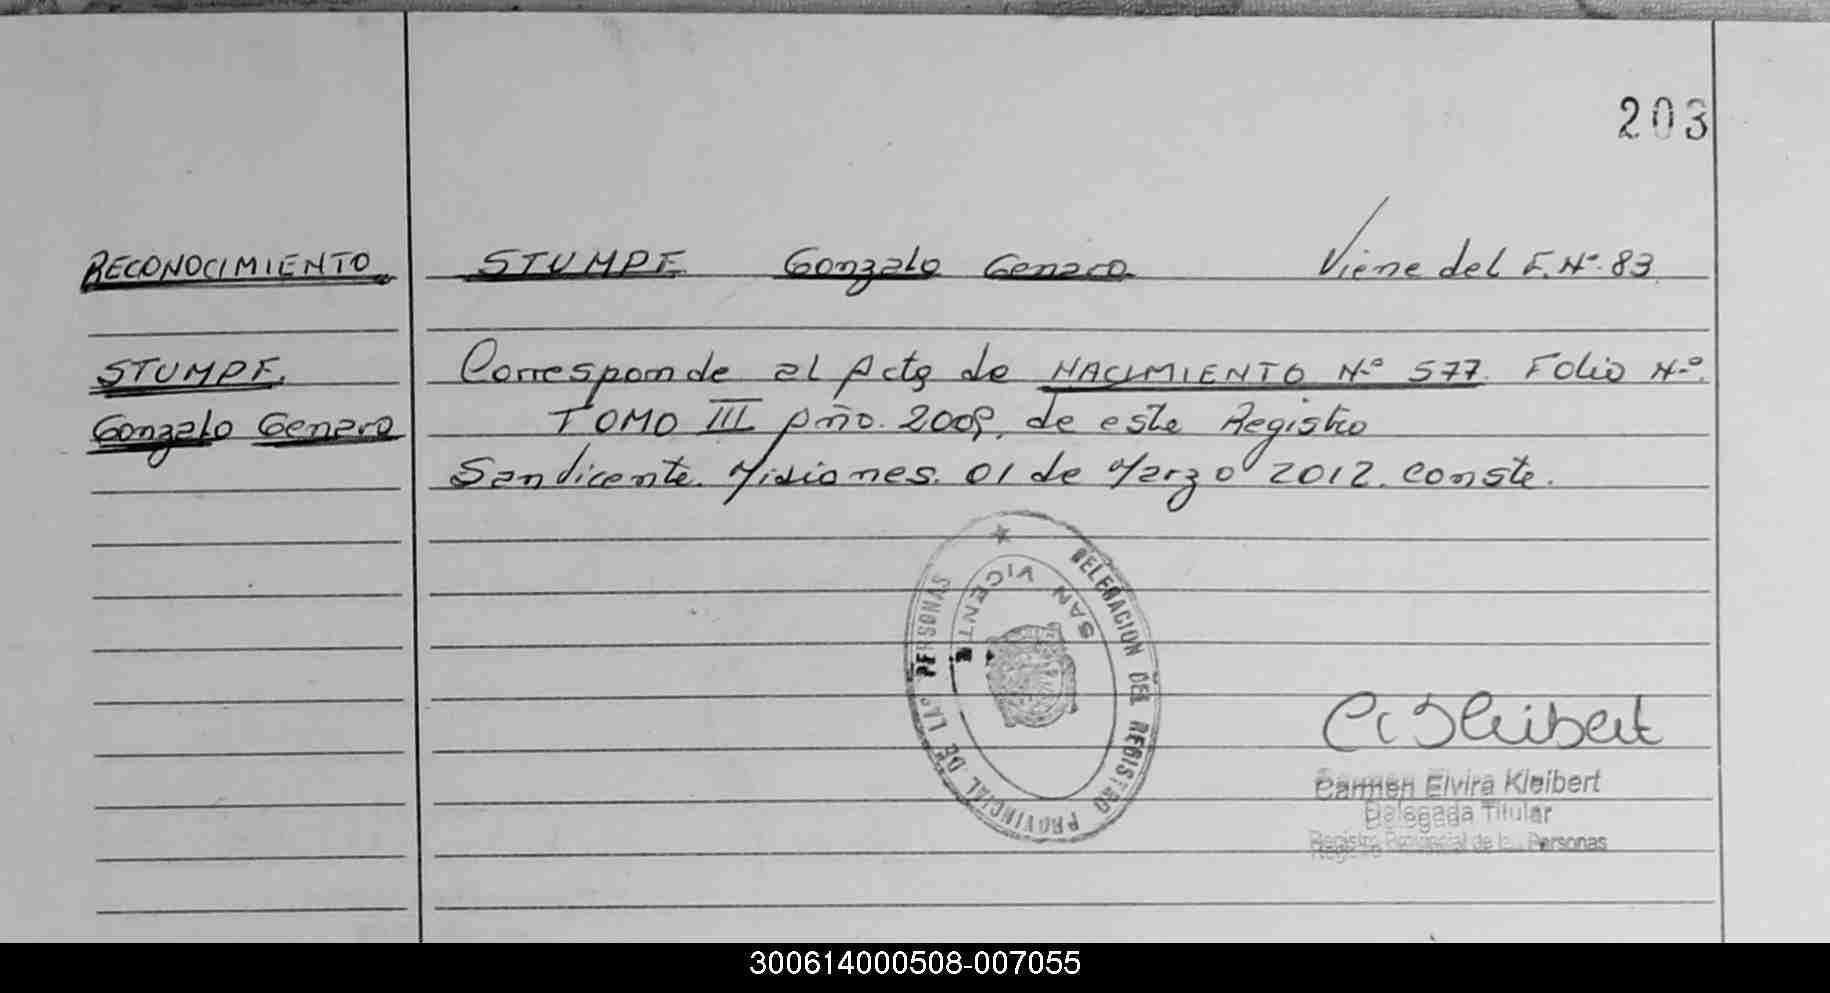 203
RECONOCIMIENTO
STUMPF Gonzalo Genaro Viene del F. Nº. 83
STUMPF.
Gonzalo Genaro
Corresponde al Acta de NACIMIENTO Nº 577. Folio Nº.
TOMO III Año. 2009. de este Registro
San Vicente. Misiones. 01 de Marzo 2012. Conste.
DELEGACION DEL REGISTRO PROVINCIAL DE LAS PERSONAS
SAN VICENTE
Carmen Elvira Kleibert
Delegada Titular
Registro Provincial de las Personas
300614000508-007055